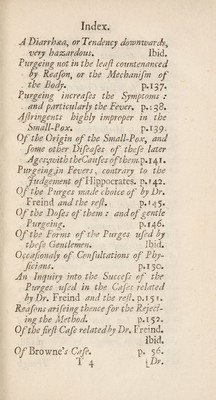 Index.
A Diarrhæa, or Tendency downwards,
very hazardous. Ibid.
Purgeing not in the least countenanced
by Reason, or the Mechanism of
the Body. p.137.
Purgeing increases the Symptoms :
and particularly the Fever. p.138.
Astringents highly improper in the
Small-Pox. p.139.
Of the Origin of the Small-Pox, and
some other Diseases of these later
Ages; with the Causes of them. p.141.
Purgeing, in Fevers, contrary to the
Judgement of Hippocrates. p.142.
Of the Purges made choice of by Dr.
Freind and the rest. p.145.
Of the Doses of them : and of gentle
Purgeing. p.146.
Of the Forms of the Purges used by
these Gentlemen. Ibid.
Occasionaly of Consultations of Phy-
sicians. p.150.
An Inquiry into the Success of the
Purges used in the Cases related
by Dr. Freind and the rest. p.151.
Reasons ariseing thence for the Reject-
ing the Method. p.152.
Of the first Case related by Dr. Freind.
Ibid.
Of Browne's Case. p. 56.
T 4 Dr.